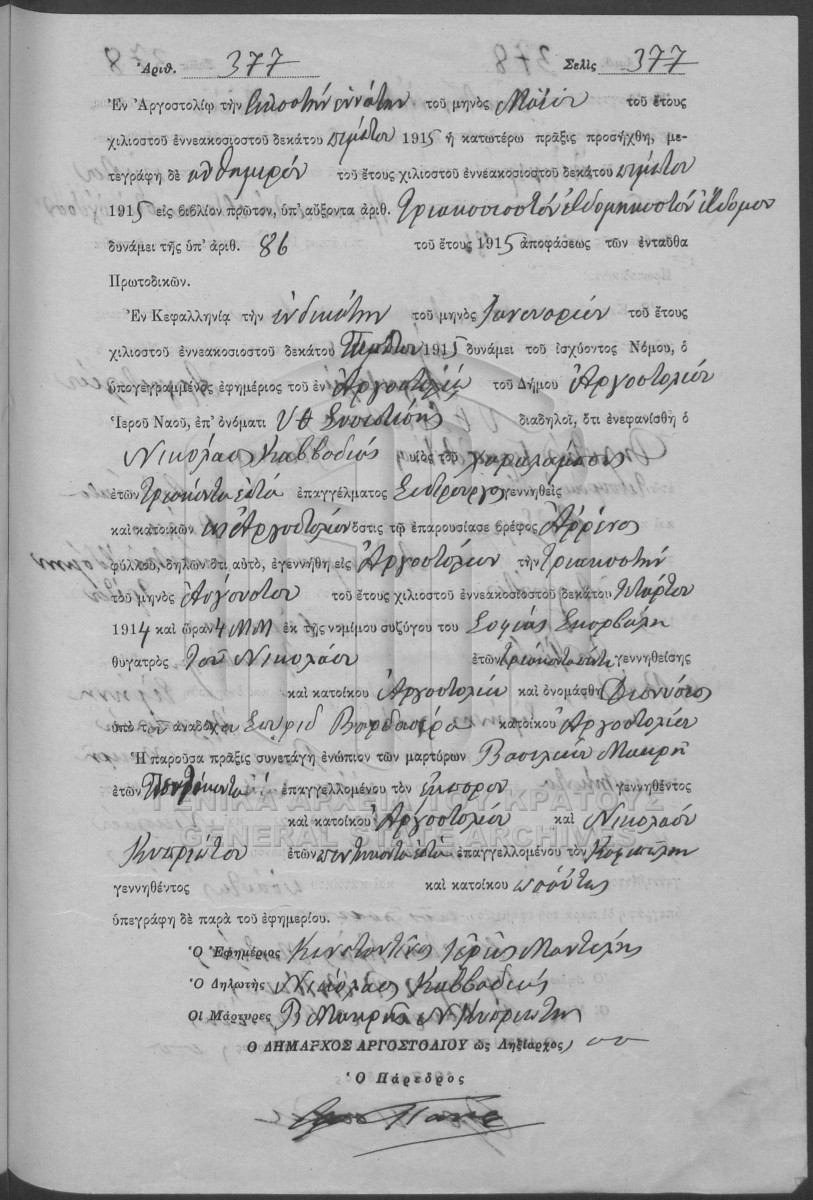 Ἀριθ. 377 Σελὶς 377
Ἐν Ἀργοστολίῳ τὴν εἰκοστὴν ἐννάτην τοῦ μηνὸς Μαΐου τοῦ ἔτους
χιλιοστοῦ ἐννεακοσιοστοῦ δεκάτου πέμπτου 1915 ἡ κατωτέρω πρᾶξις προσήχθη, με-
τεγράφη δὲ αὐθημερόν τοῦ ἔτους χιλιοστοῦ ἐννεακοσιοστοῦ δεκάτου πέμπτου
1915 εἰς βιβλίον πρῶτον, ὑπ' αὔξοντα ἀριθ. Τριακοσιοστὸν ἑβδομηκοστὸν ἕβδομον
δυνάμει τῆς ὑπ' ἀριθ. 86 τοῦ ἔτους 1915 ἀποφάσεως τῶν ἐνταῦθα
Πρωτοδικῶν.
Ἐν Κεφαλληνίᾳ τὴν ἑνδεκάτην τοῦ μηνὸς Ἰανουαρίου τοῦ ἔτους
χιλιοστοῦ ἐννεακοσιοστοῦ δεκάτου Πέμπτου 1915 δυνάμει τοῦ ἰσχύοντος Νόμου, ὁ
ὑπογεγραμμένος ἐφημέριος τοῦ ἐν Ἀργοστολίῳ τοῦ Δήμου Ἀργοστολίου
Ἱεροῦ Ναοῦ, ἐπ' ὀνόματι Υ Θ Σισσιωτίσης διαδηλοῖ, ὅτι ἐνεφανίσθη ὁ
Νικόλαος Καββαδίας υἱὸς τοῦ Χαραλάμπους
ἐτῶν Τριάκοντα ἑπτά ἐπαγγέλματος Σιδηρουργός γεννηθεὶς
καὶ κατοικῶν εἰς Ἀργοστόλιον ὅστις τῷ ἐπαρουσίασε βρέφος Ἄρρενος
φύλλου, δηλῶν ὅτι αὐτό, ἐγεννήθη εἰς Ἀργοστόλιον τὴν Τριακοστήν
τοῦ μηνὸς Αὐγούστου τοῦ ἔτους χιλιοστοῦ ἐννεακοσιοστοῦ δεκάτου Τετάρτου
1914 καὶ ὥραν 4 ΜΜ ἐκ τῆς νομίμου συζύγου του Σοφίας Σκορβάλη
θυγατρὸς Τοῦ Νικολάου ἐτῶν τριάκοντα πέντε γεννηθείσης
καὶ κατοίκου Ἀργοστολίου καὶ ὀνομάσθη Διονύσιος
ὑπὸ τοῦ ἀναδόχου Σπυρίδ κατοίκου Ἀργοστολίου
Ἡ παροῦσα πρᾶξις συνετάγη ἐνώπιον τῶν μαρτύρων Βασιλείου Μακρῆ
ἐτῶν ἐπαγγελλομένου τὸν ἔμπορον γεννηθέντος
ΓΕΝΙΚΑ ΑΡΧΕΙΑ ΤΟΥ ΚΡΑΤΟΥΣ
GENERAL STATE ARCHIVES
καὶ κατοίκου Ἀργοστολίου καὶ Νικολάου
Κυπριώτου ἐτῶν πεντήκοντα ἑπτά ἐπαγγελλομένου τὸν
γεννηθέντος καὶ κατοίκου ὡσαύτως
ὑπεγράφη δὲ παρὰ τοῦ ἐφημερίου.
Ὁ Ἐφημέριος Κωνσταντῖνος Ἱερεὺς Μαντζάνης
Ὁ Δηλωτὴς Νικόλαος Καββαδίας
Οἱ Μάρτυρες Β Μακρῆς Ν Κυπριώτης
Ο ΔΗΜΑΡΧΟΣ ΑΡΓΟΣΤΟΛΙΟΥ ὡς Ληξίαρχος
Ὁ Πάρεδρος